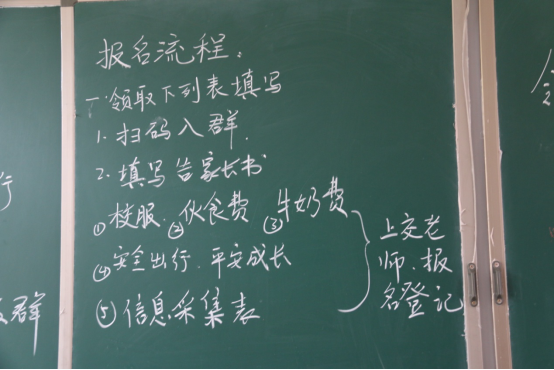 报名流程:
一.领取下列表填写
1.扫码入群.
2.填写告家长书
①校服.②伙食费 ③牛奶费
④安全出行.平安成长
⑤信息采集表
上交老
师、报
名登记
行
群